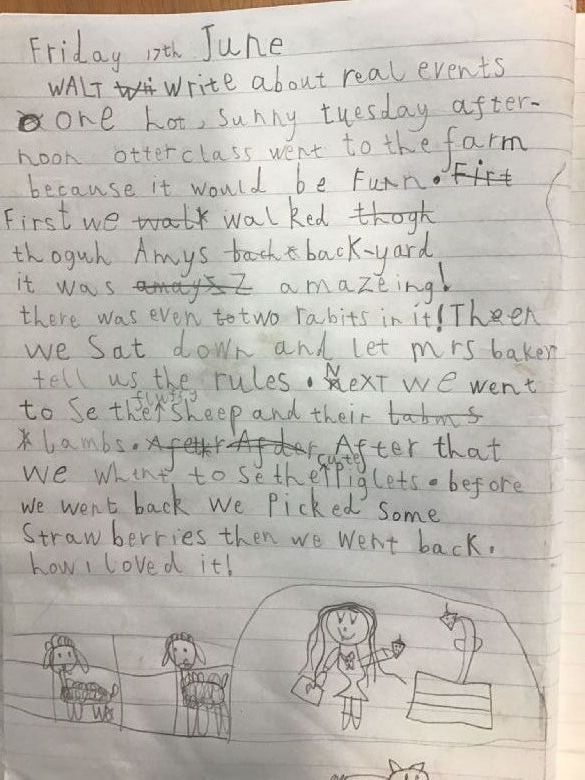 Friday 17th June
WALT Wri Write about real events
one hot, sunny tuesday after-
noon otterclass went to the farm
because it would be Funn. Firt
First we walk walked thogh
thoguh Amys back back-yard
it was amaysZ amazeing!
there was even to two rabits in it! Theen
we Sat down and let mrs baker
tell us the rules. Next we went
to Se the fluffy sheep and their
Lambs. After that
we whent to se the cute Piglets. before
we went back we Picked Some
Strawberries then we went back.
how i loved it!